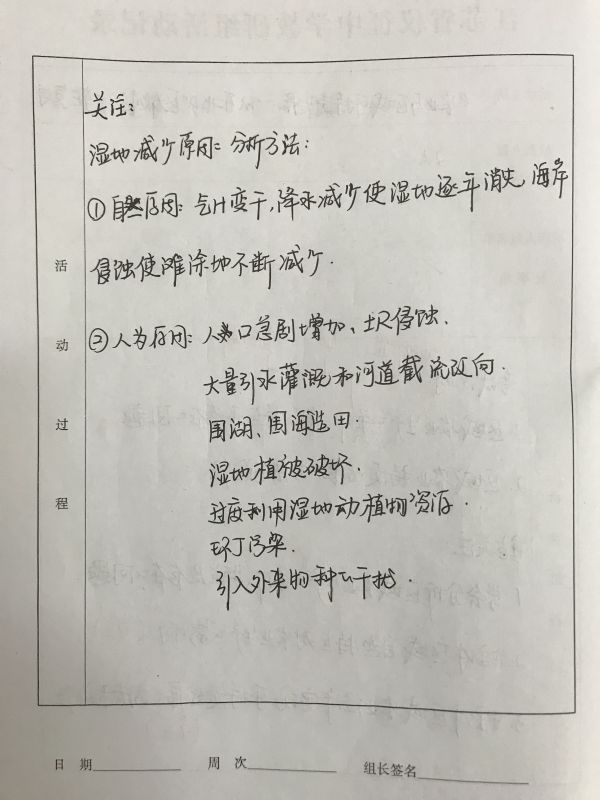 关注:
湿地减少原因: 分析方法:
①自然原因: 气计变干,降水减少使湿地逐年消失,海岸
侵蚀使滩涂地不断减少.
②人为原因: 人为口急剧增加、土只侵蚀、
大量引水灌溉和河道截流改向.
围湖、围海造田.
湿地植被破坏.
过度利用湿地动植物资源.
环丁污染.
引入外来物种的干扰.
活动过程
日 期
周 次
组长签名